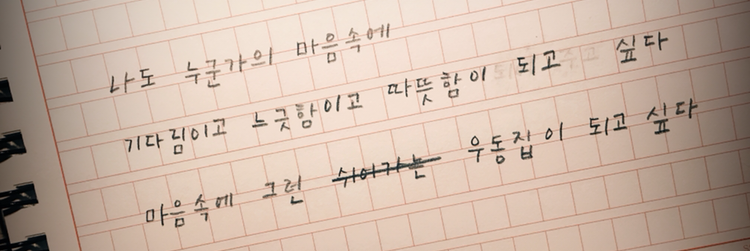 나도 누군가의 마음속에
기다림이고 느긋함이고 따뜻함이 되고 싶다
마음속에 그런 쉬어가는 우동집이 되고 싶다